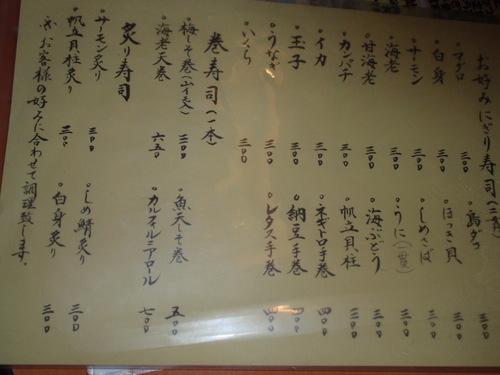 お好みにぎり寿司(二貫)
。マグロ 三〇〇
。島ダコ 三〇〇
。白身 三〇〇
。ほっき貝 三〇〇
。サーモン 三〇〇
。しめさば 三〇〇
。海老 三〇〇
。うに(一貫) 三〇〇
。甘海老 三〇〇
。海ぶどう 三〇〇
。カンパチ 三〇〇
。帆立貝柱 三〇〇
。イカ 三〇〇
。ネギトロ手巻 四〇〇
。玉子 三〇〇
。納豆手巻 四〇〇
。うなぎ 三〇〇
。レタス手巻 四〇〇
。いくら 三〇〇
巻寿司(一本)
。梅しそ巻(山イモ入) 三〇〇
。魚天しそ巻 五〇〇
。海老天巻 六五〇
。カルフォルニアロール 七〇〇
炙り寿司
。サーモン炙り 三〇〇
。しめ鯖炙り 三〇〇
。帆立貝柱炙り 三〇〇
。白身炙り 三〇〇
※お客様の好みに合わせて調理致します。